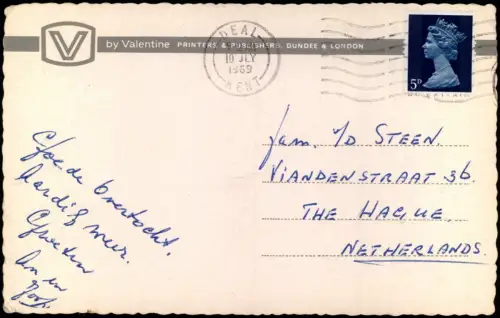 V by Valentine PRINTERS & PUBLISHERS, DUNDEE & LONDON
DEAL
10 JLY
1969
KENT
5D
Fam. v/D STEEN.
VIANDENSTRAAT 36.
THE HAGUE.
NETHERLANDS.
Goede overtocht.
Aardig weer.
Groeten
An en